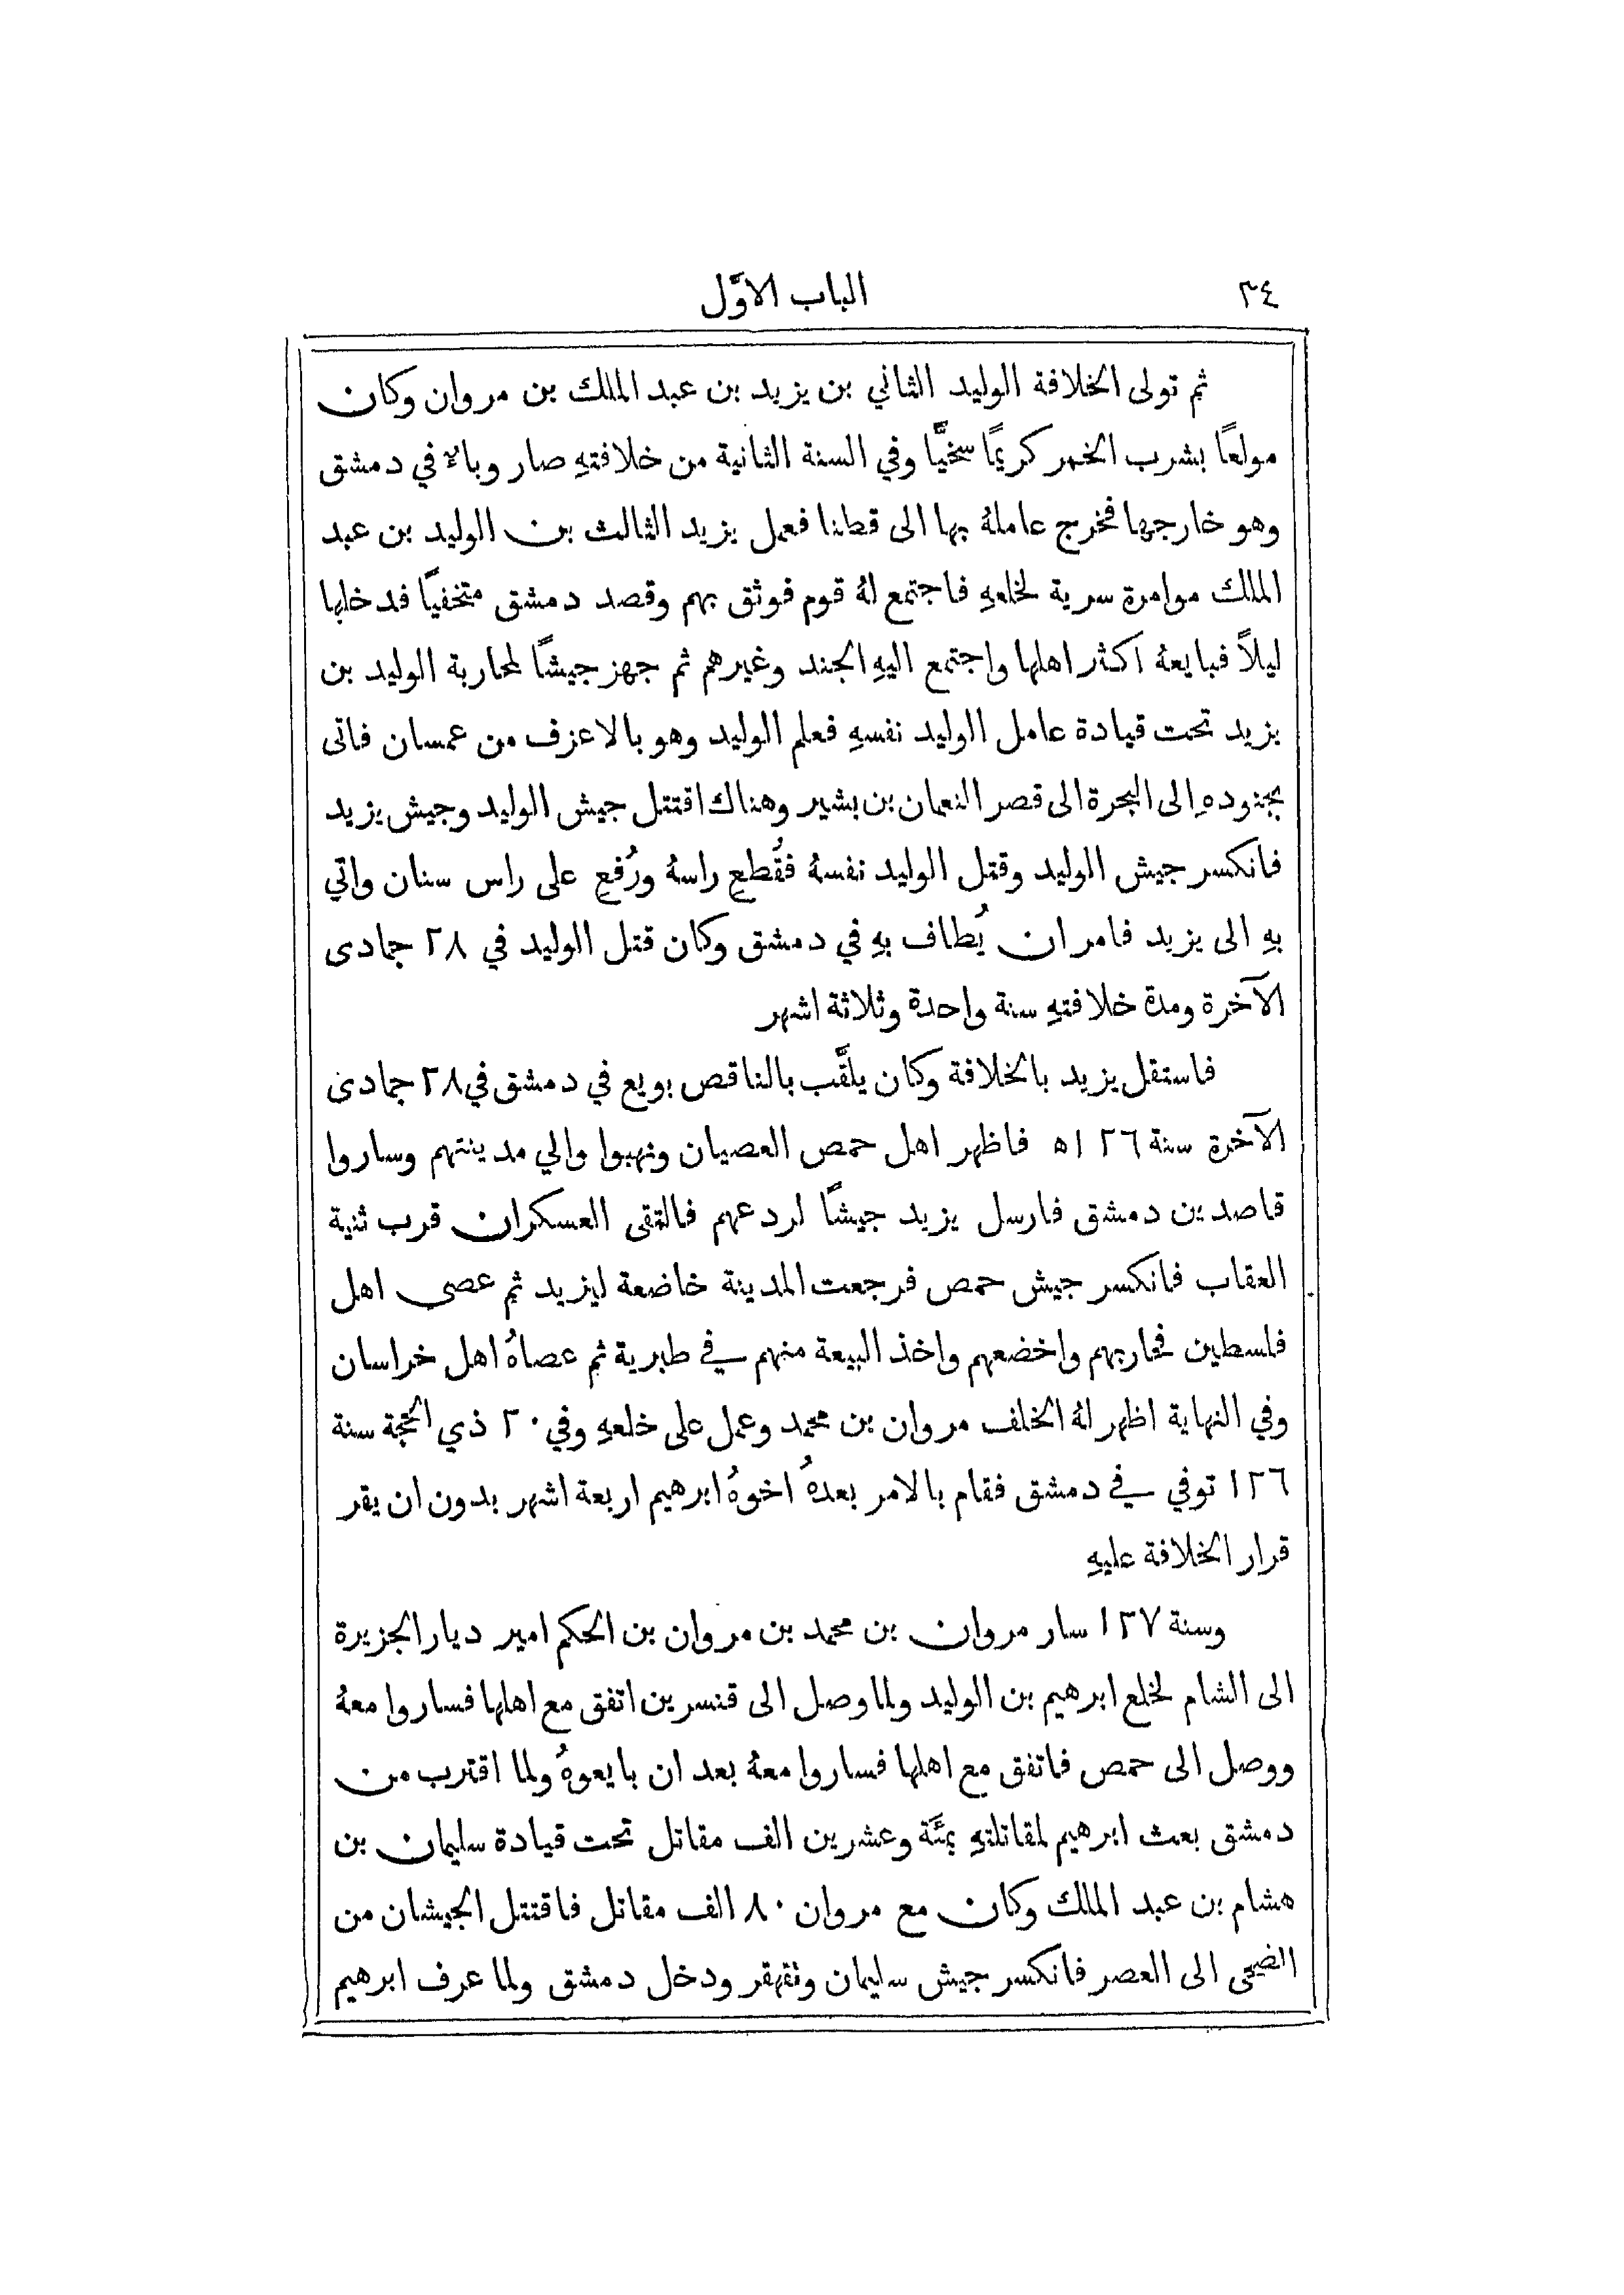 ٣٤ الباب الاوَّل
ثم تولى الخلافة الوليد الثاني بن يزيد بن عبد الملك بن مروان وكان
مولعًا بشرب الخمر كريمًا سخيًّا وفي السنة الثانية من خلافتهِ صار وبالا في دمشق
وهو خارجها فخرج عاملهُ بها الى قطنا فعمل يزيد الثالث بن الوليد بن عبد
الملك موامرة سرية لخلعهِ فاجتمع لهُ قوم فوثق بهم وقصد دمشق متخفيًا فدخلها
ليلاً فبايعهُ اكثر اهلها واجتمع اليهِ الجند وغيرهم ثم جهز جيشًا لمحاربة الوليد بن
يزيد تحت قيادة عامل الوليد نفسهِ فعلم الوليد وهو بالاعزف من عمسان فاتى
بجنودهِ الى البجرة الى قصر النعمان بن بشير وهناك اقتتل جيش الوليد وجيش يزيد
فانكسر جيش الوليد وقتل الوليد نفسهُ فقُطع راسهُ ورُفع على راس سنان واتي
بهِ الى يزيد فامر ان يُطاف بهِ في دمشق وكان قتل الوليد في ٢٨ جمادى
الآخرة ومدة خلافتهِ سنة واحدة وثلاثة اشهر
فاستقل يزيد بالخلافة وكان يلقَّب بالناقص بويع في دمشق في ٢٨ جمادى
الآخرة سنة ١٢٦ه فاظهر اهل حمص العصيان ونهبوا والي مدينتهم وساروا
قاصدين دمشق فارسل يزيد جيشًا لردعهم فالتقى العسكران قرب ثنية
العقاب فانكسر جيش حمص فرجعت المدينة خاضعة ليزيد ثم عصى اهل
فلسطين فحاربهم واخضعهم واخذ البيعة منهم في طبرية ثم عصاهُ اهل خراسان
وفي النهاية اظهر لهُ الخلف مروان بن محمد وعمل على خلعهِ وفي ٢٠ ذي الحجة سنة
١٢٦ توفي في دمشق فقام بالامر بعدهُ اخوهُ ابرهيم اربعة اشهر بدون ان يقر
قرار الخلافة عليهِ
وسنة ١٢٧ سار مروان بن محمد بن مروان بن الحكم امير ديار الجزيرة
الى الشام لخلع ابرهيم بن الوليد ولما وصل الى قنسرين اتفق مع اهلها فساروا معهُ
ووصل الى حمص فاتفق مع اهلها فساروا معهُ بعد ان بايعوهُ ولما اقترب من
دمشق بعث ابرهيم لمقاتلتهِ بمئَة وعشرين الف مقاتل تحت قيادة سليمان بن
هشام بن عبد الملك وكان مع مروان ٨٠ الف مقاتل فاقتتل الجيشان من
الضحى الى العصر فانكسر جيش سليمان وتقهقر ودخل دمشق ولما عرف ابرهيم